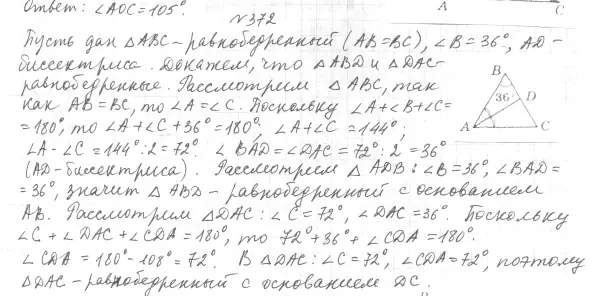 Ответ: ∠AOC = 105°.
N 372
Пусть дан △ABC – равнобедренный (AB = BC), ∠B = 36°, AD –
биссектриса. Докажем, что △ABD и △DAC –
равнобедренные. Рассмотрим △ABC, так
как AB = BC, то ∠A = ∠C. Поскольку ∠A + ∠B + ∠C =
= 180°, то ∠A + ∠C + 36° = 180°, ∠A + ∠C = 144°,
∠A - ∠C = 144° : 2 = 72°. ∠BAD = ∠DAC = 72° : 2 = 36°
(AD – биссектриса). Рассмотрим △ADB : ∠B = 36°, ∠BAD =
= 36°, значит △ABD – равнобедренный с основанием
AB. Рассмотрим △DAC : ∠C = 72°, ∠DAC = 36°. Поскольку
∠C + ∠DAC + ∠CDA = 180°, то 72° + 36° + ∠CDA = 180°.
∠CDA = 180° - 108° = 72°. В △DAC : ∠C = 72°, ∠CDA = 72°, поэтому
△DAC – равнобедренный с основанием DC.
A C
B
36°
D
A C